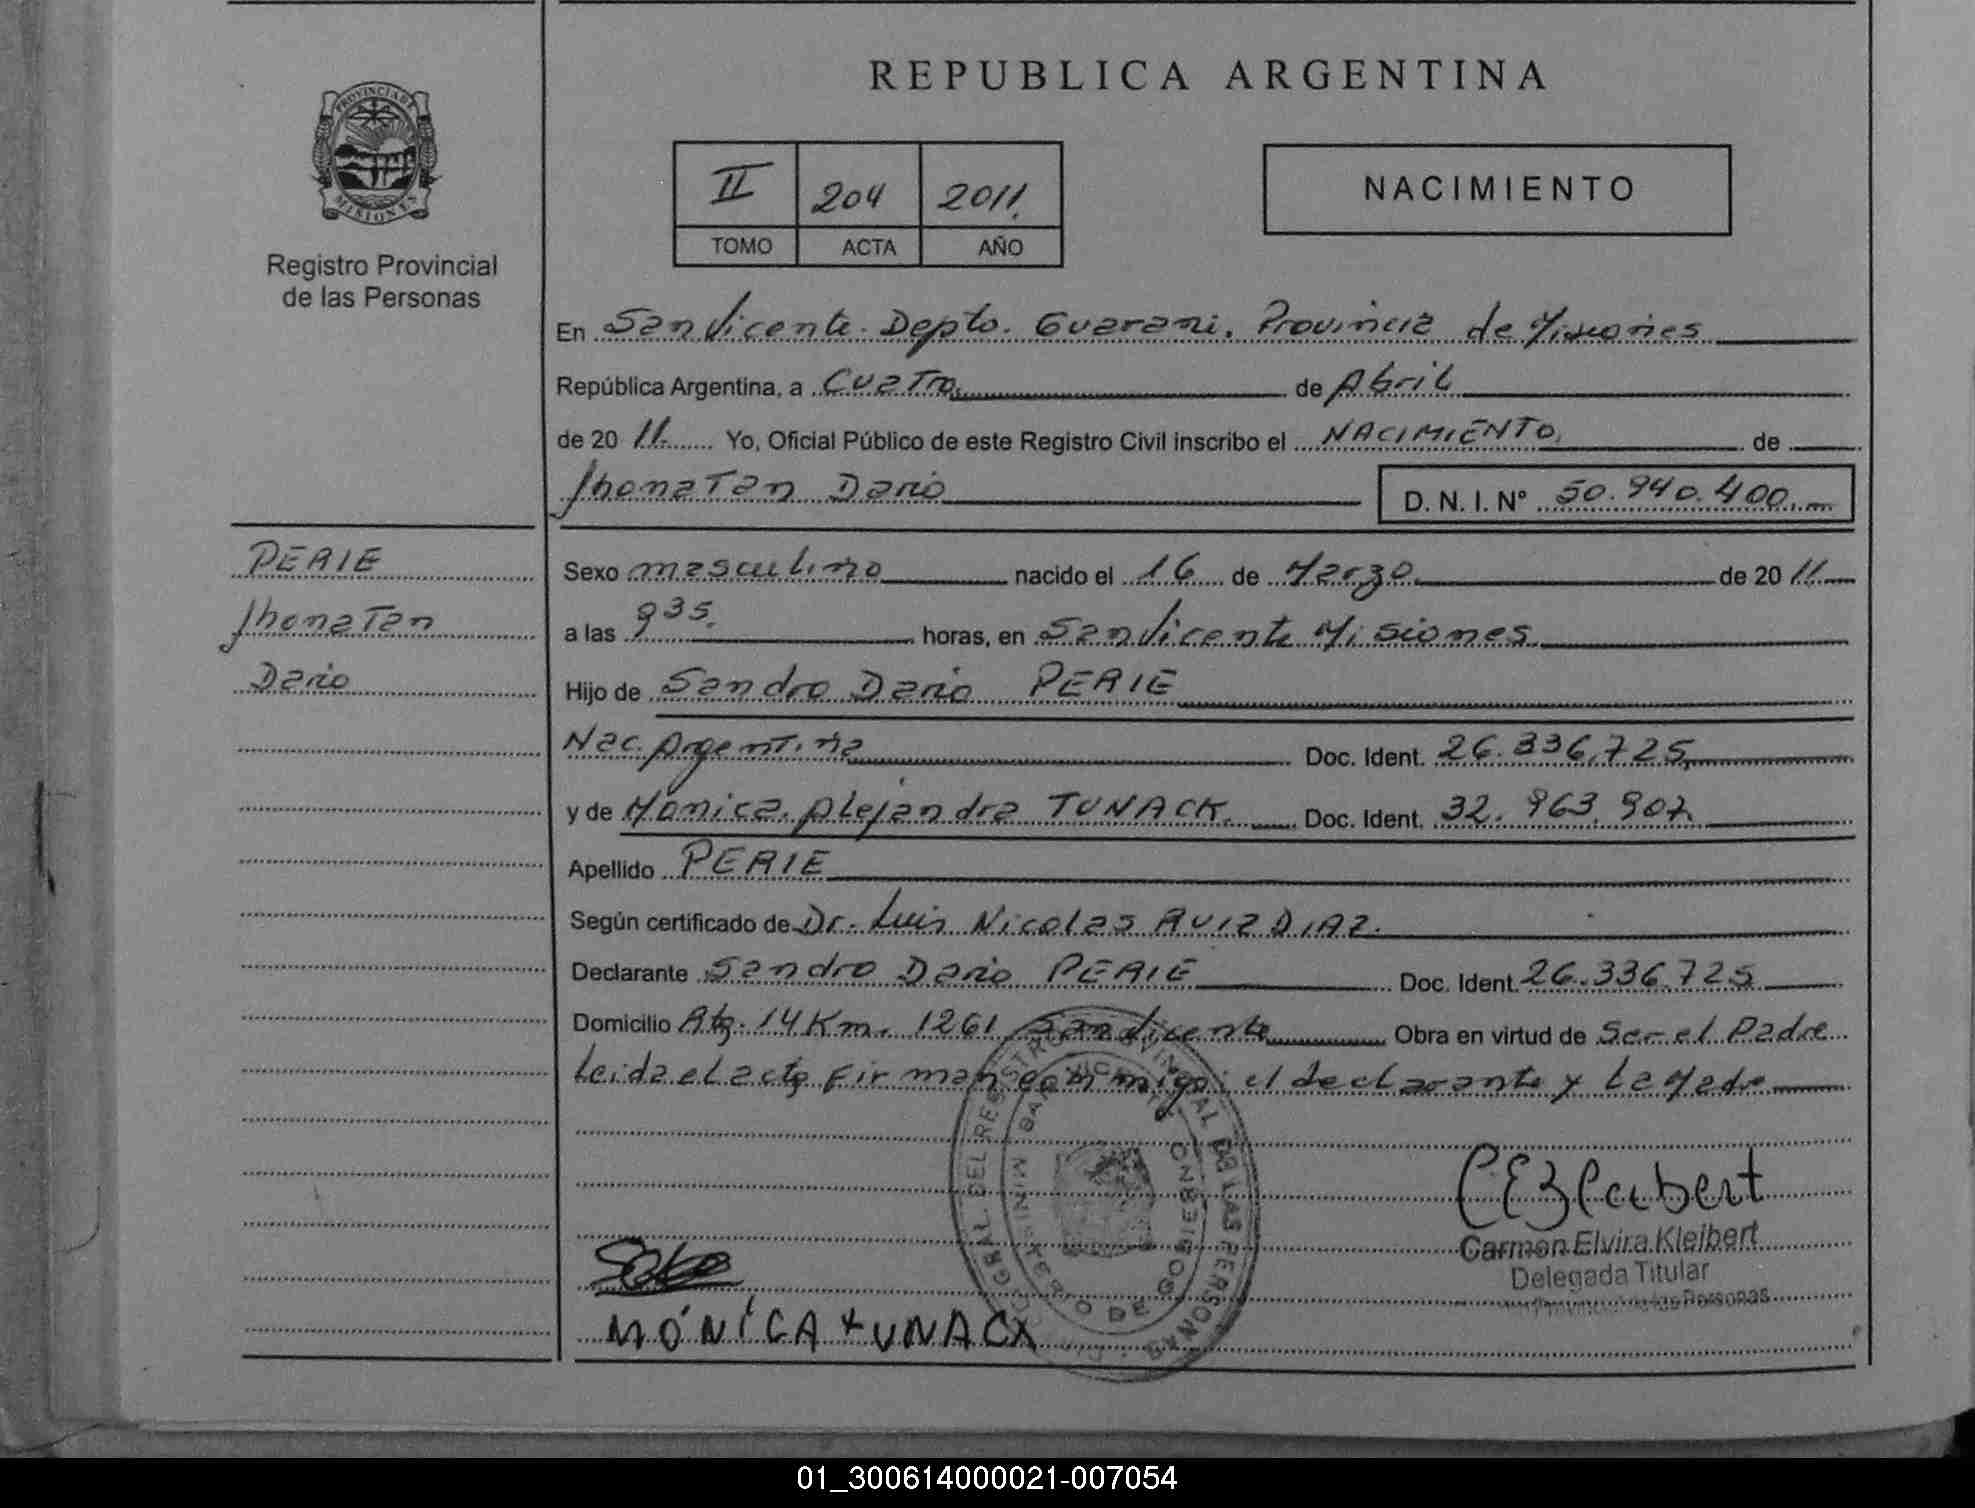 REPUBLICA ARGENTINA
PROVINCIA DE
MISIONES
Registro Provincial
de las Personas
II 204 2011.
TOMO ACTA AÑO
NACIMIENTO
En San Vicente. Depto. Guarani. Provincia de Misiones
República Argentina, a Cuatro. de Abril
de 20 11. Yo, Oficial Público de este Registro Civil inscribo el NACIMIENTO. de
Jhonatan Dario D. N. I. Nº 50.940.400.
PERIE
Jhonatan
Dario
Sexo masculino nacido el 16 de Marzo de 20 11
a las 9 35. horas, en San Vicente Misiones
Hijo de Sandro Dario PERIE
Nac. Argentina Doc. Ident. 26.336.725
y de Monica Alejandra TUNACK. Doc. Ident. 32.963.907
Apellido PERIE
Según certificado de Dr. Luis Nicolas RUIZ DIAZ.
Declarante Sandro Dario PERIE Doc. Ident. 26.336.725
Domicilio Rta. 14 Km. 1261 San Vicente Obra en virtud de Ser el Padre
Leida el acta Firman conmigo: el declarante y La Madre
Carmen Elvira Kleibert
Delegada Titular
MÓNICA TUNACK
01_300614000021-007054